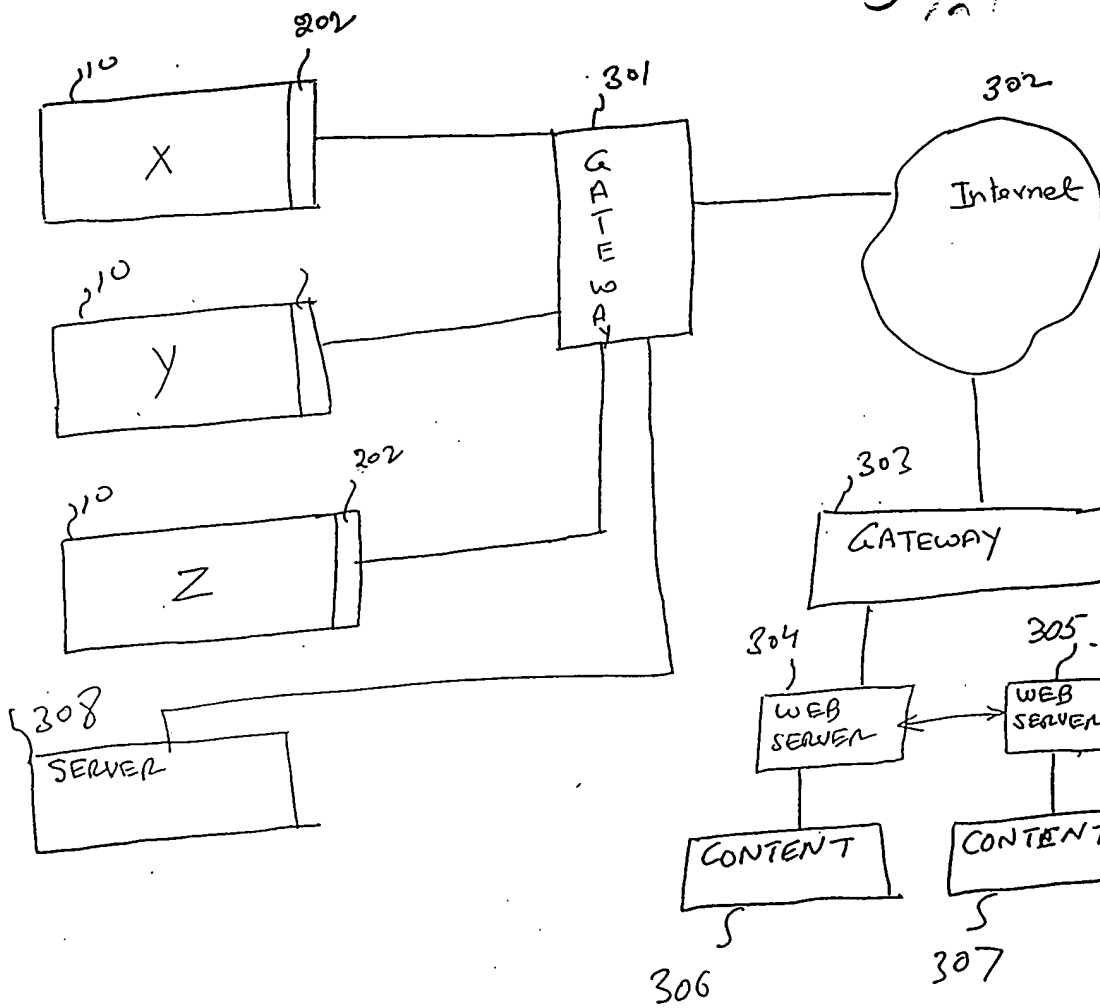 202
10
X
301
GATEWAY
302
Internet
10
Y
202
10
Z
303
GATEWAY
304
305
WEB
SERVER
WEB
SERVER
308
SERVER
CONTENT
CONTENT
306
307